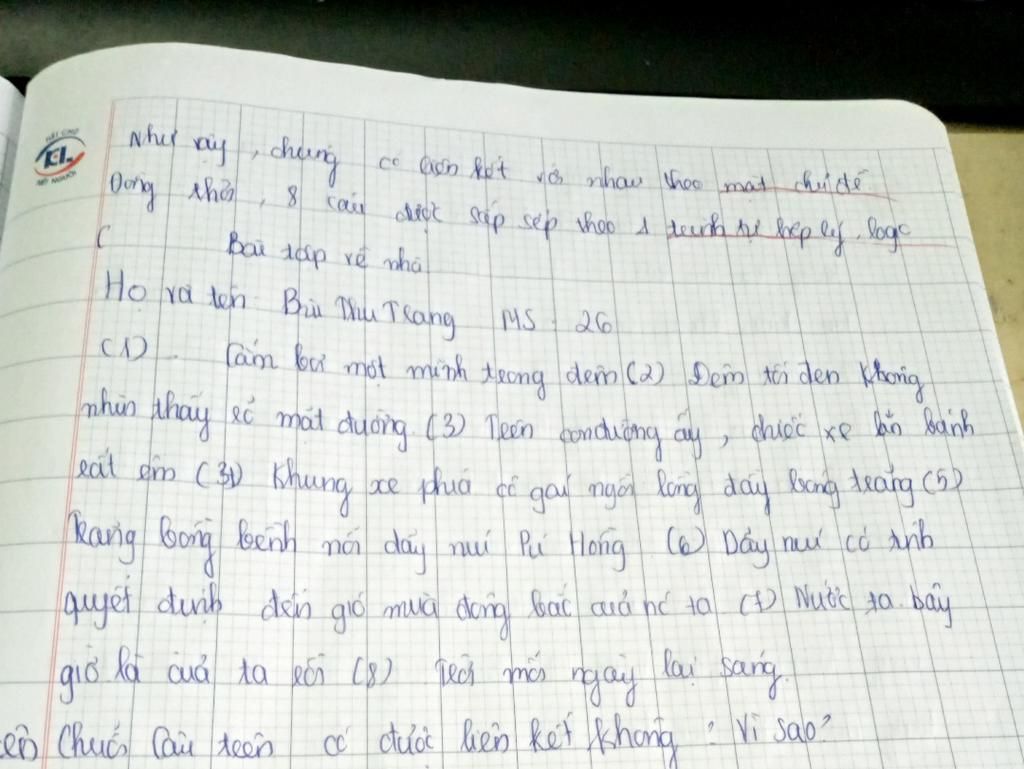 Như vậy, chúng có liên kết với nhau theo mặt chủ đề.
Đồng thời, 8 câu được sắp sếp theo 1 trình tự hợp lý, logic
Bài tập về nhà
Họ và tên Bùi Thu Trang MS 26
(1) Cắm bơi một mình trong đêm (2) Đêm tối đen không
nhìn thấy rõ mặt đường (3) Trên con đường ấy, chiếc xe lăn bánh
rất êm (34) Khung xe phía cô gái ngồi lồng đầy bóng trăng (5)
Trăng bồng bềnh nổi dãy núi Pú Hồng (6) Dãy núi có ảnh
quyết định đến gió mùa đông bắc của nc ta (7) Nước ta bây
giờ là của ta rồi (8) Trời mới ngày lại sáng.
Chuỗi câu trên có được liên kết không? Vì sao?